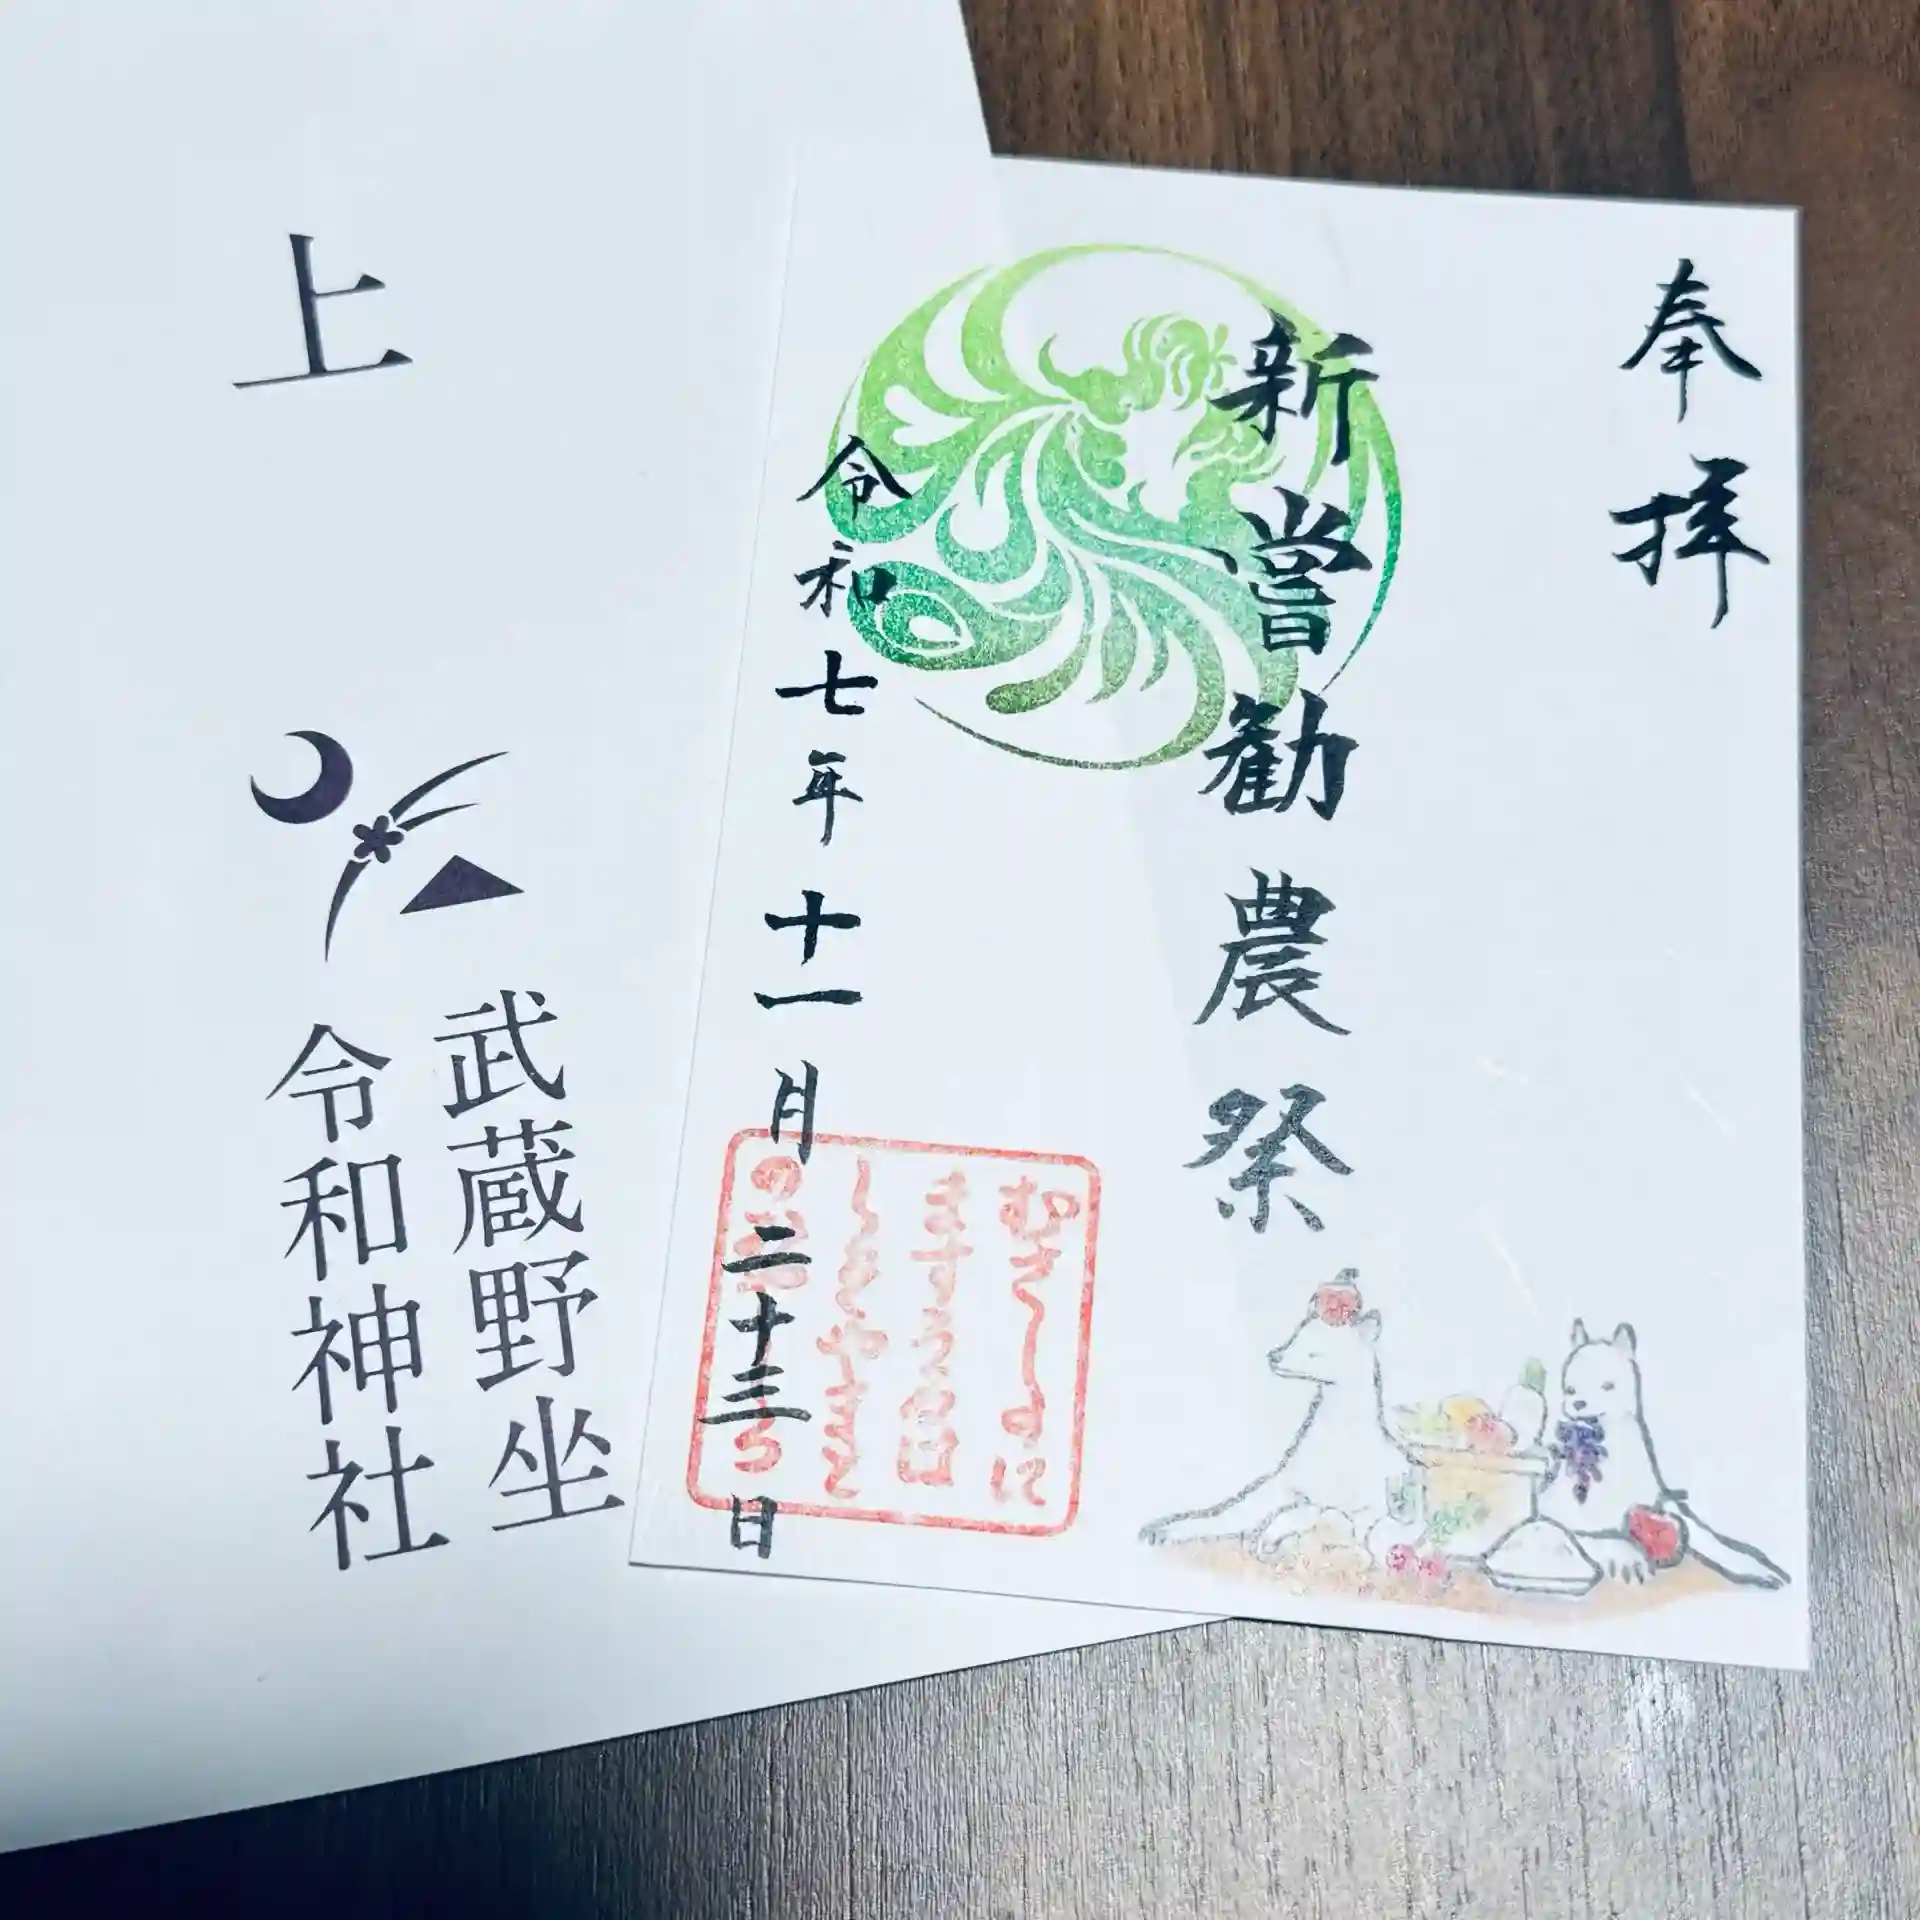 奉拝
新嘗勧農祭
令和七年十一月二十三日
むさしのに
ます
上
武蔵野坐
令和神社